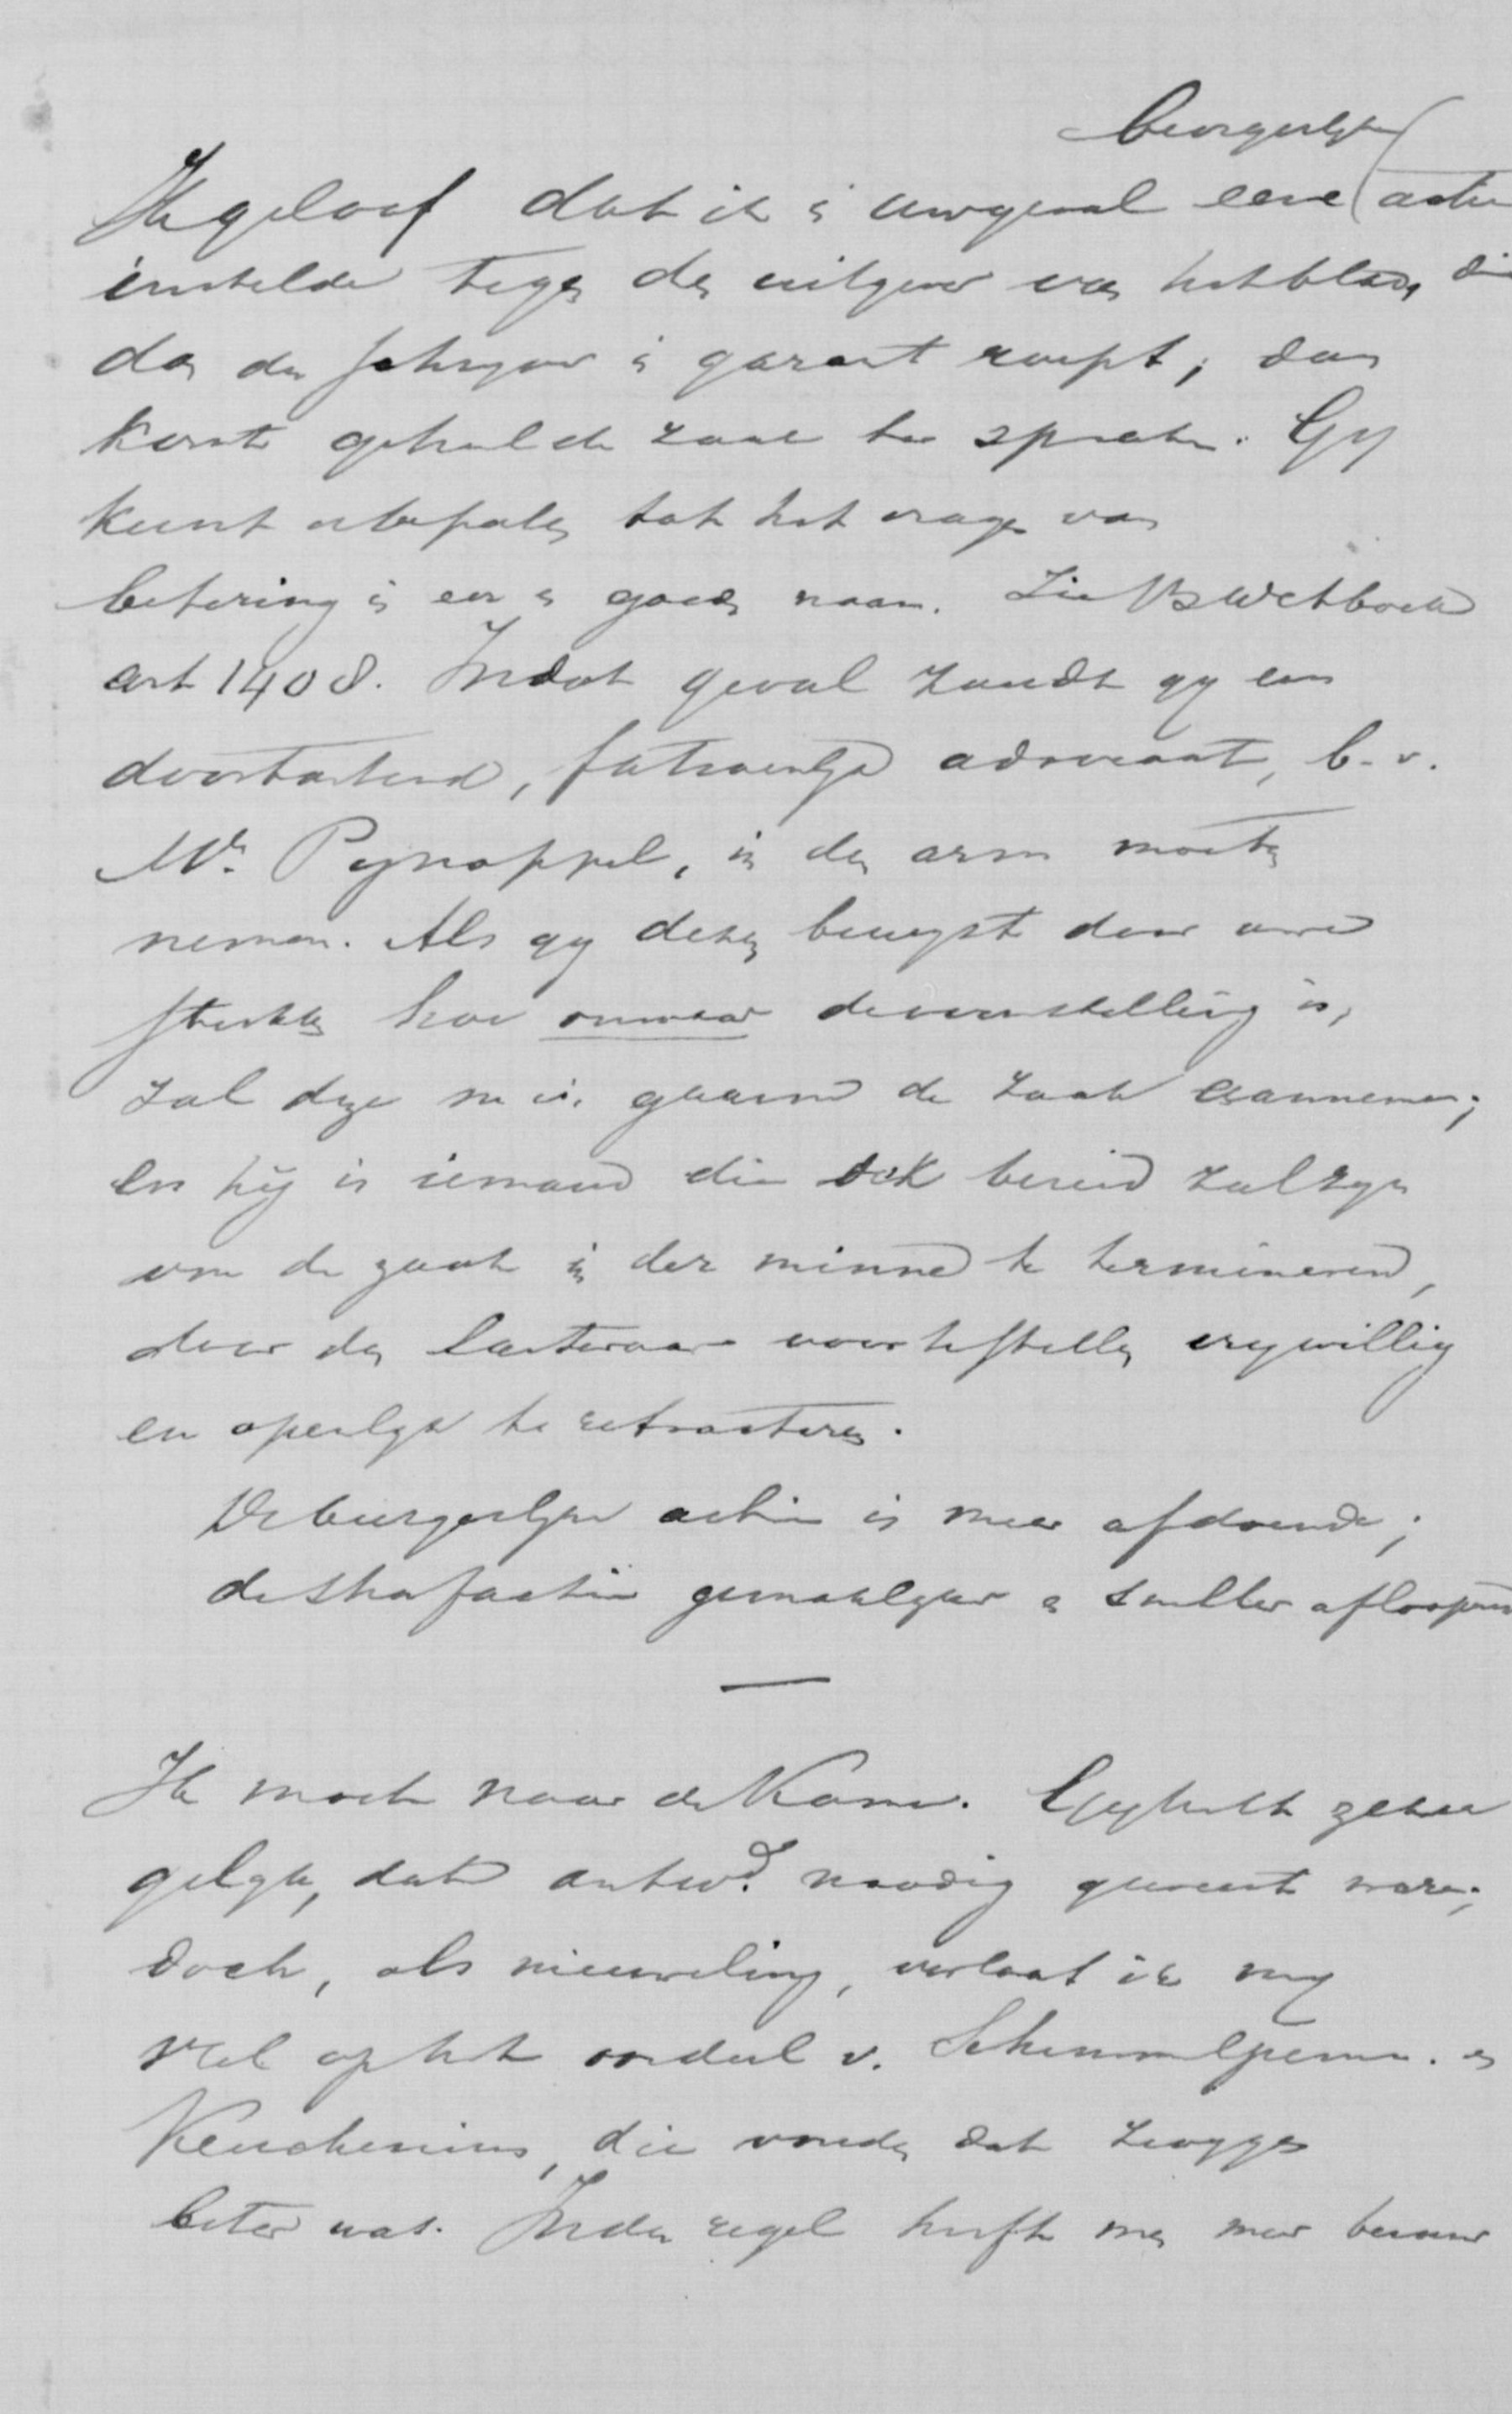 burgerlyke
Ik geloof dat ik in uw geval eene actie
instelde tegen den uitgever van het blad, die
dan den schryver in garant roept; dan
komt geheel de zaak ter sprake. Gy
kunt u bepalen tot het vragen van
betering in eer en goeden naam. Zie B Wetboek
art 1408. In dat geval zoudt gy een
doortastend, fatsoenlyk advocaat, b.v.
Mr. Pynappel, in den arm moeten
nemen. Als gy dezen bewyst door uwe
stukken hoe onwaar de voorstelling is,
zal deze m.i. gaarne de zaak aannemen;
en hij is iemand die ook bereid zal zyn
om de zaak in der minne te termineren,
door den lasteraar voor te stellen vrywillig
en openlyk te retracteren.
De burgerlyke actie is meer afdoende;
de strafactie gemaklyker en sneller afloopend
—
Ik moet naar de Kamer. Gy hebt zeker
gelyk, dat antwd. noodig geweest ware;
doch, als nieuweling, verlaat ik my
veel op het oordeel v. Schimmelpenn. en
Keuchenius, die vonden dat zwygen
beter was. In den regel heeft men meer berouw